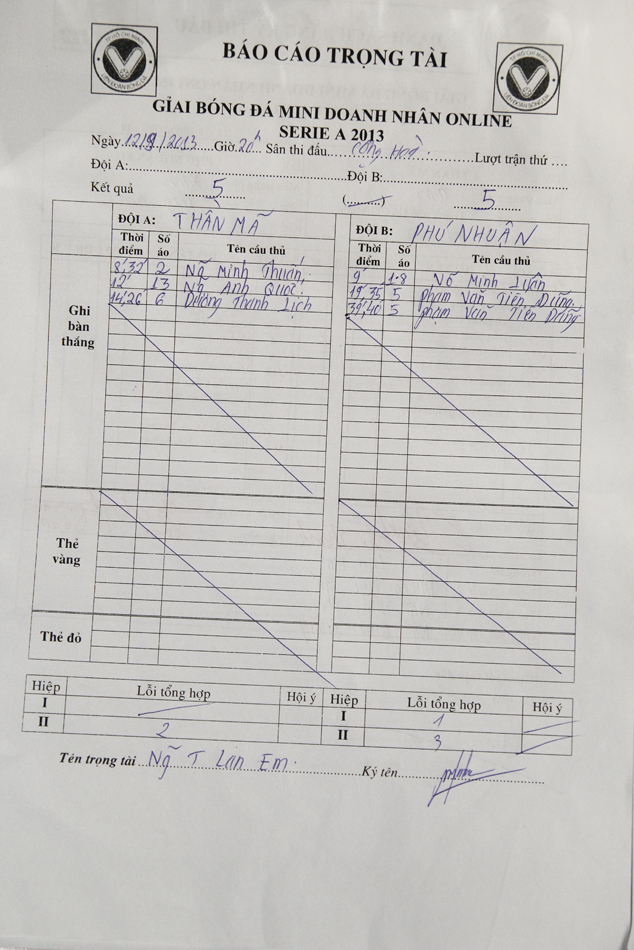 TP HỒ CHÍ MINH
LIÊN ĐOÀN BÓNG ĐÁ
BÁO CÁO TRỌNG TÀI
TP HỒ CHÍ MINH
LIÊN ĐOÀN BÓNG ĐÁ
GIẢI BÓNG ĐÁ MINI DOANH NHÂN ONLINE
SERIE A 2013
Ngày 12/9/2013 Giờ 20h Sân thi đấu Cộng Hoà Lượt trận thứ ....
Đội A: Đội B:
Kết quả 5 (........) 5
ĐỘI A: THẦN MÃ ĐỘI B: PHÚ NHUẬN
Thời điểm Số áo Tên cầu thủ Thời điểm Số áo Tên cầu thủ
Ghi bàn thắng
8',32' 2 Ng̃ Minh Thuấn 9' 18 Võ Minh Luân
12' 13 Ng̃ Anh Quốc 19',35' 5 Phạm Văn Tiến Dũng
14',26' 6 Dương Thanh Lịch 39',40' 5 Phạm Văn Tiến Dũng
Thẻ vàng
Thẻ đỏ
Hiệp Lỗi tổng hợp Hội ý Hiệp Lỗi tổng hợp Hội ý
I I 1
II 2 II 3
Tên trọng tài Ng̃ T Lan Em Ký tên